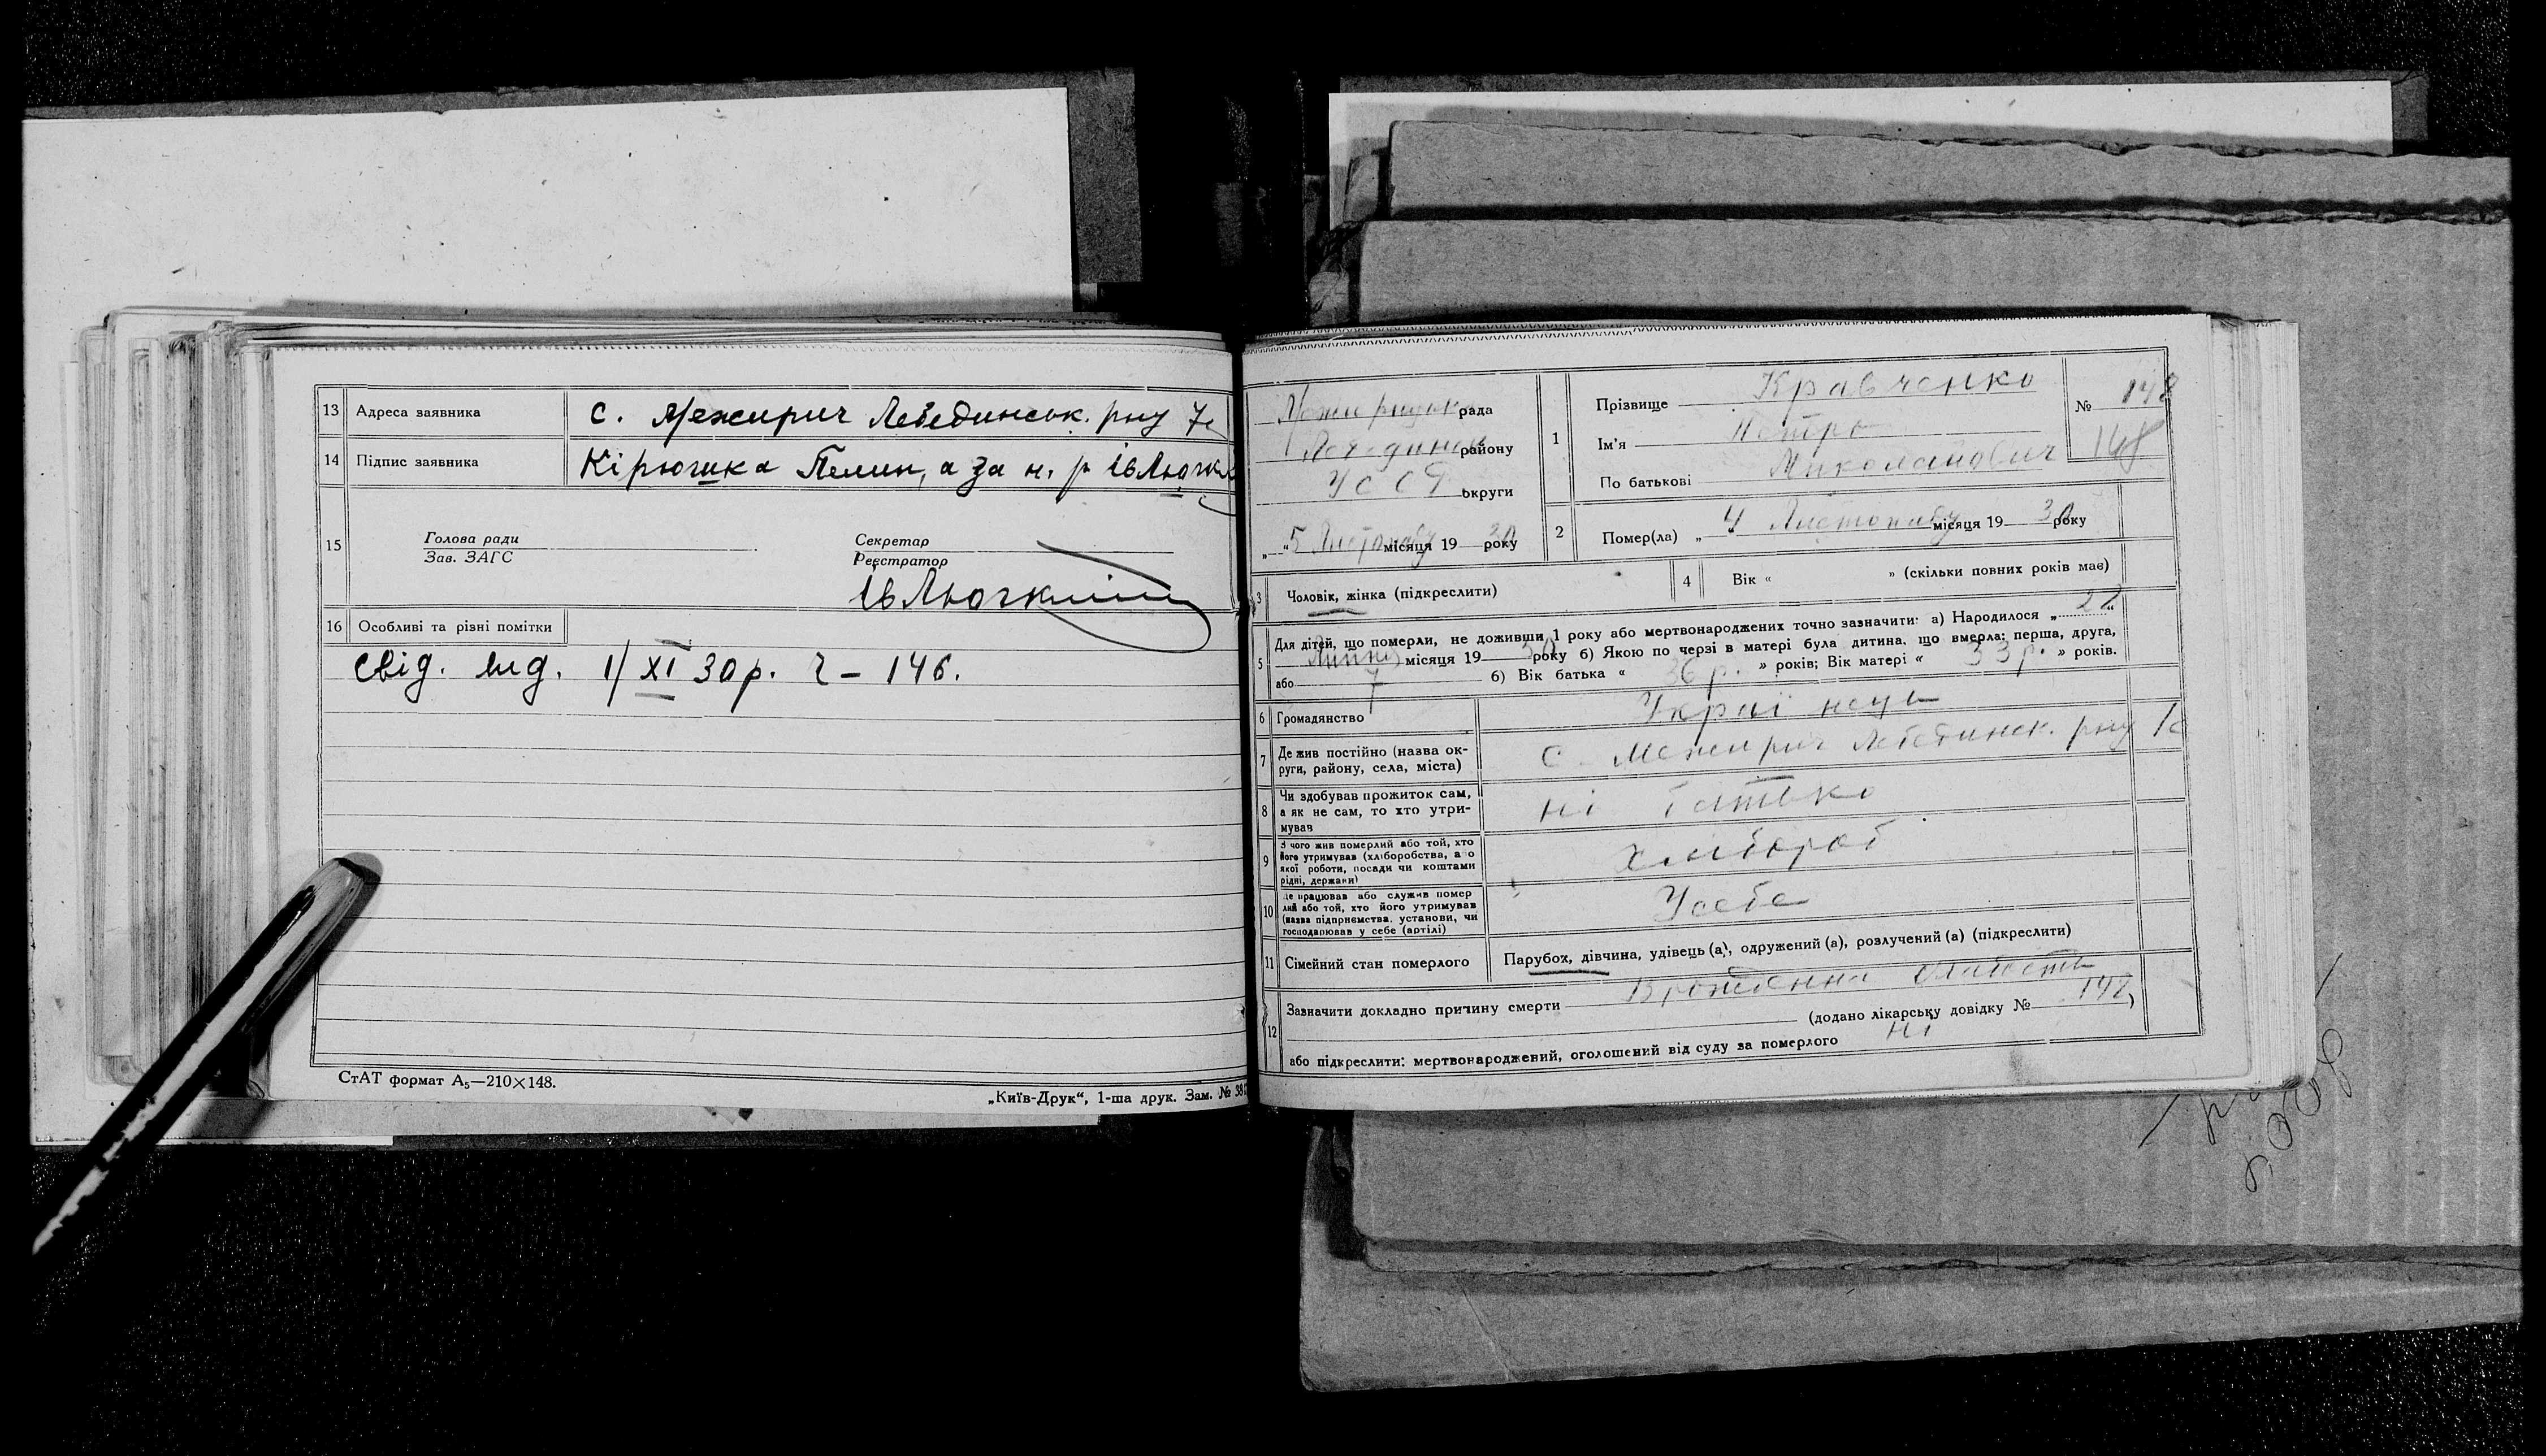 13 Адреса заявника с. Межирич Лебединськ. рну
14 Підпис заявника Кірюшка Пелип, а за н. р
15
Голова ради
Зав. ЗАГС
Секретар
Реєстратор
16 Особливі та різні помітки
Свід. вид. 1/XI 30 р. Ч – 146.
СтАТ формат А5—210×148.
„Київ-Друк“, 1-ша друк. Зам. № 38
Межирицька рада
Лебединськ району
УССР округи
„5“ Листопаду місяця 1930 року
1
Прізвище Кравченко
Ім'я Петро
По батькові Миколайович
№ 148
148
2 Помер(ла) „4 Листопаду місяця 1930 року
3 Чоловік, жінка (підкреслити)
4 Вік « » (скільки повних років має)
5 Для дітей, що померли, не доживши 1 року або мертвонароджених точно зазначити: а) Народилося „22“
Липня місяця 1930 року б) Якою по черзі в матері була дитина, що вмерла: перша, друга,
або 7 б) Вік батька « 36 р. » років; Вік матері « 33 р. » років.
6 Громадянство Українець
7 Де жив постійно (назва округи, району, села, міста) с. Межирич Лебединск. рну
8 Чи здобував прожиток сам, а як не сам, то хто утримував ні батько
9 З чого жив померлий або той, хто його утримував (хліборобства, або якої роботи, посади чи коштами рідні, держави) Хлібороб
10 Де працював або служив померлий або той, хто його утримував (назва підприємства, установи, чи господарював у себе (артілі) Усебе
11 Сімейний стан померлого Парубок, дівчина, удівець (а), одружений (а), розлучений (а) (підкреслити)
12 Зазначити докладно причину смерти Врожденна слабость
(додано лікарську довідку № 148)
або підкреслити: мертвонароджений, оголошений від суду за померлого ні